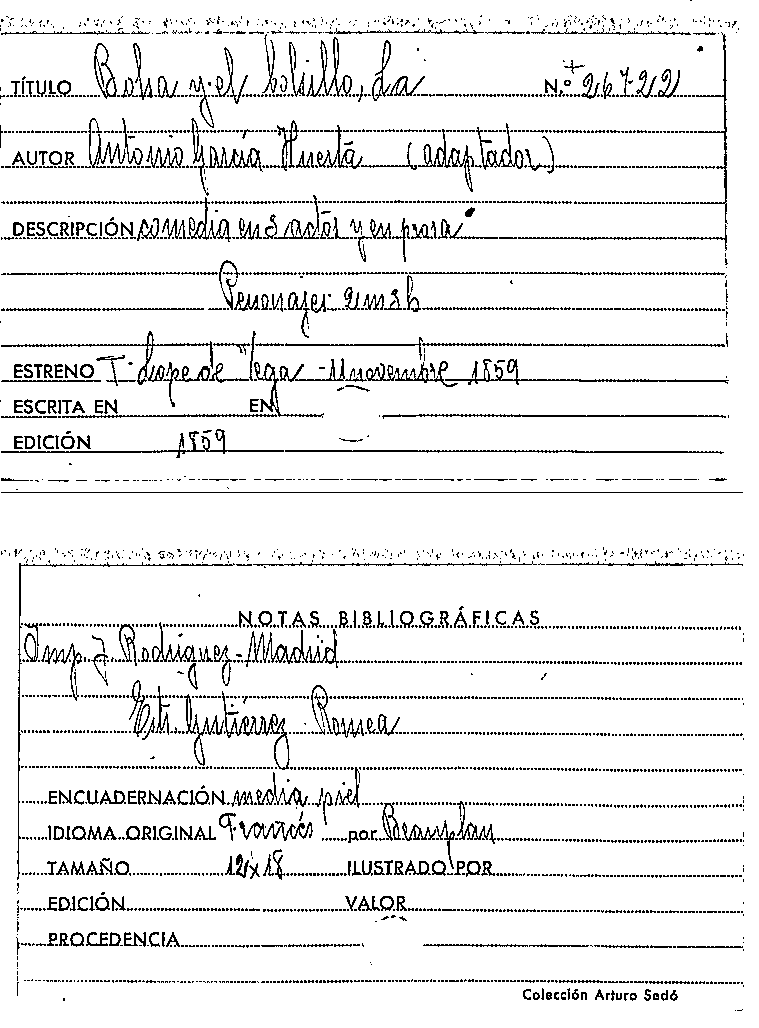 TÍTULO Bolsa y el bolsillo, La N.º 26722
AUTOR Antonio García Huerta (adaptador)
DESCRIPCIÓN comedia en 3 actos y en prosa
Personajes 2m3h
ESTRENO T. Lope de Vega - 11 novembre 1859
ESCRITA EN EN
EDICIÓN 1859
NOTAS BIBLIOGRÁFICAS
Imp. J. Rodriguez - Madrid
Estr. Gutiérrez - Romea
ENCUADERNACIÓN media piel
IDIOMA ORIGINAL Francés por Beauplan
TAMAÑO 12x18 ILUSTRADO POR
EDICIÓN VALOR
PROCEDENCIA
Colección Arturo Sedó